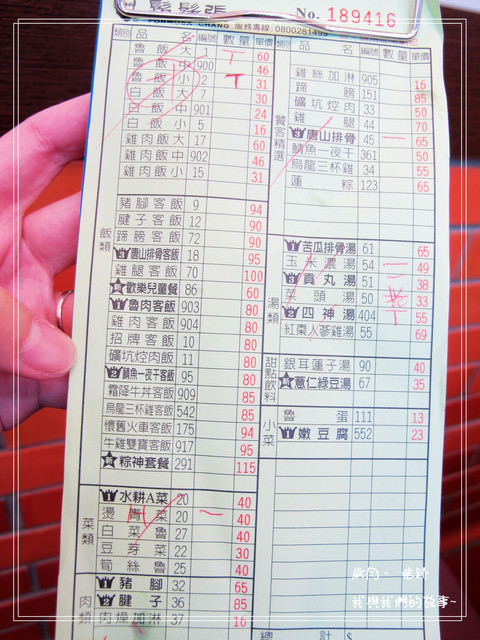 鬍鬚張 No. 189416
FORMOSA CHANG 服務專線: 0800281499
類別 品名 編號 數量 單價
飯類
魯飯大 1 一 60
魯飯中 900 46
魯飯小 2 31
白飯大 7 30
白飯中 901 24
白飯小 5 16
雞肉飯大 17 60
雞肉飯中 902 46
雞肉飯小 15 31
豬腳客飯 9 94
腱子客飯 12 90
蹄膀客飯 72 90
唐山排骨客飯 18 95
雞腿客飯 70 100
歡樂兒童餐 86 60
1 魯肉客飯 903 80
雞肉客飯 904 80
招牌客飯 10 80
礦坑焢肉飯 11 80
2 鯖魚一夜干客飯 95 80
霜降牛丼客飯 909 85
烏龍三杯雞客飯 542 85
懷舊火車客飯 175 94
牛雞雙寶客飯 917 95
粽神套餐 291 115
菜類
1 水耕A菜 20 40
燙青菜 20 一 40
白菜魯 27 40
豆芽菜 22 30
筍絲 25 40
肉類
1 豬腳 32 65
2 腱子 36 85
肉燥加淋 37 16
類別 品名 編號 數量 單價
饕客精選
雞絲加淋 905 16
蹄膀 151 85
礦坑焢肉 33 50
雞腿 44 70
3 唐山排骨 45 一 65
鯖魚一夜干 361 50
烏龍三杯雞 34 55
蓮粽 123 65
湯類
1 苦瓜排骨湯 61 65
玉米濃湯 54 一 49
3 貢丸湯 51 一 38
菜頭湯 50 33
2 四神湯 404 55
紅棗人蔘雞湯 55 69
甜點飲料
銀耳蓮子湯 90 40
薏仁綠豆湯 67 35
小菜
魯蛋 111 13
1 嫩豆腐 552 23
總計 $
我與我們的故事~